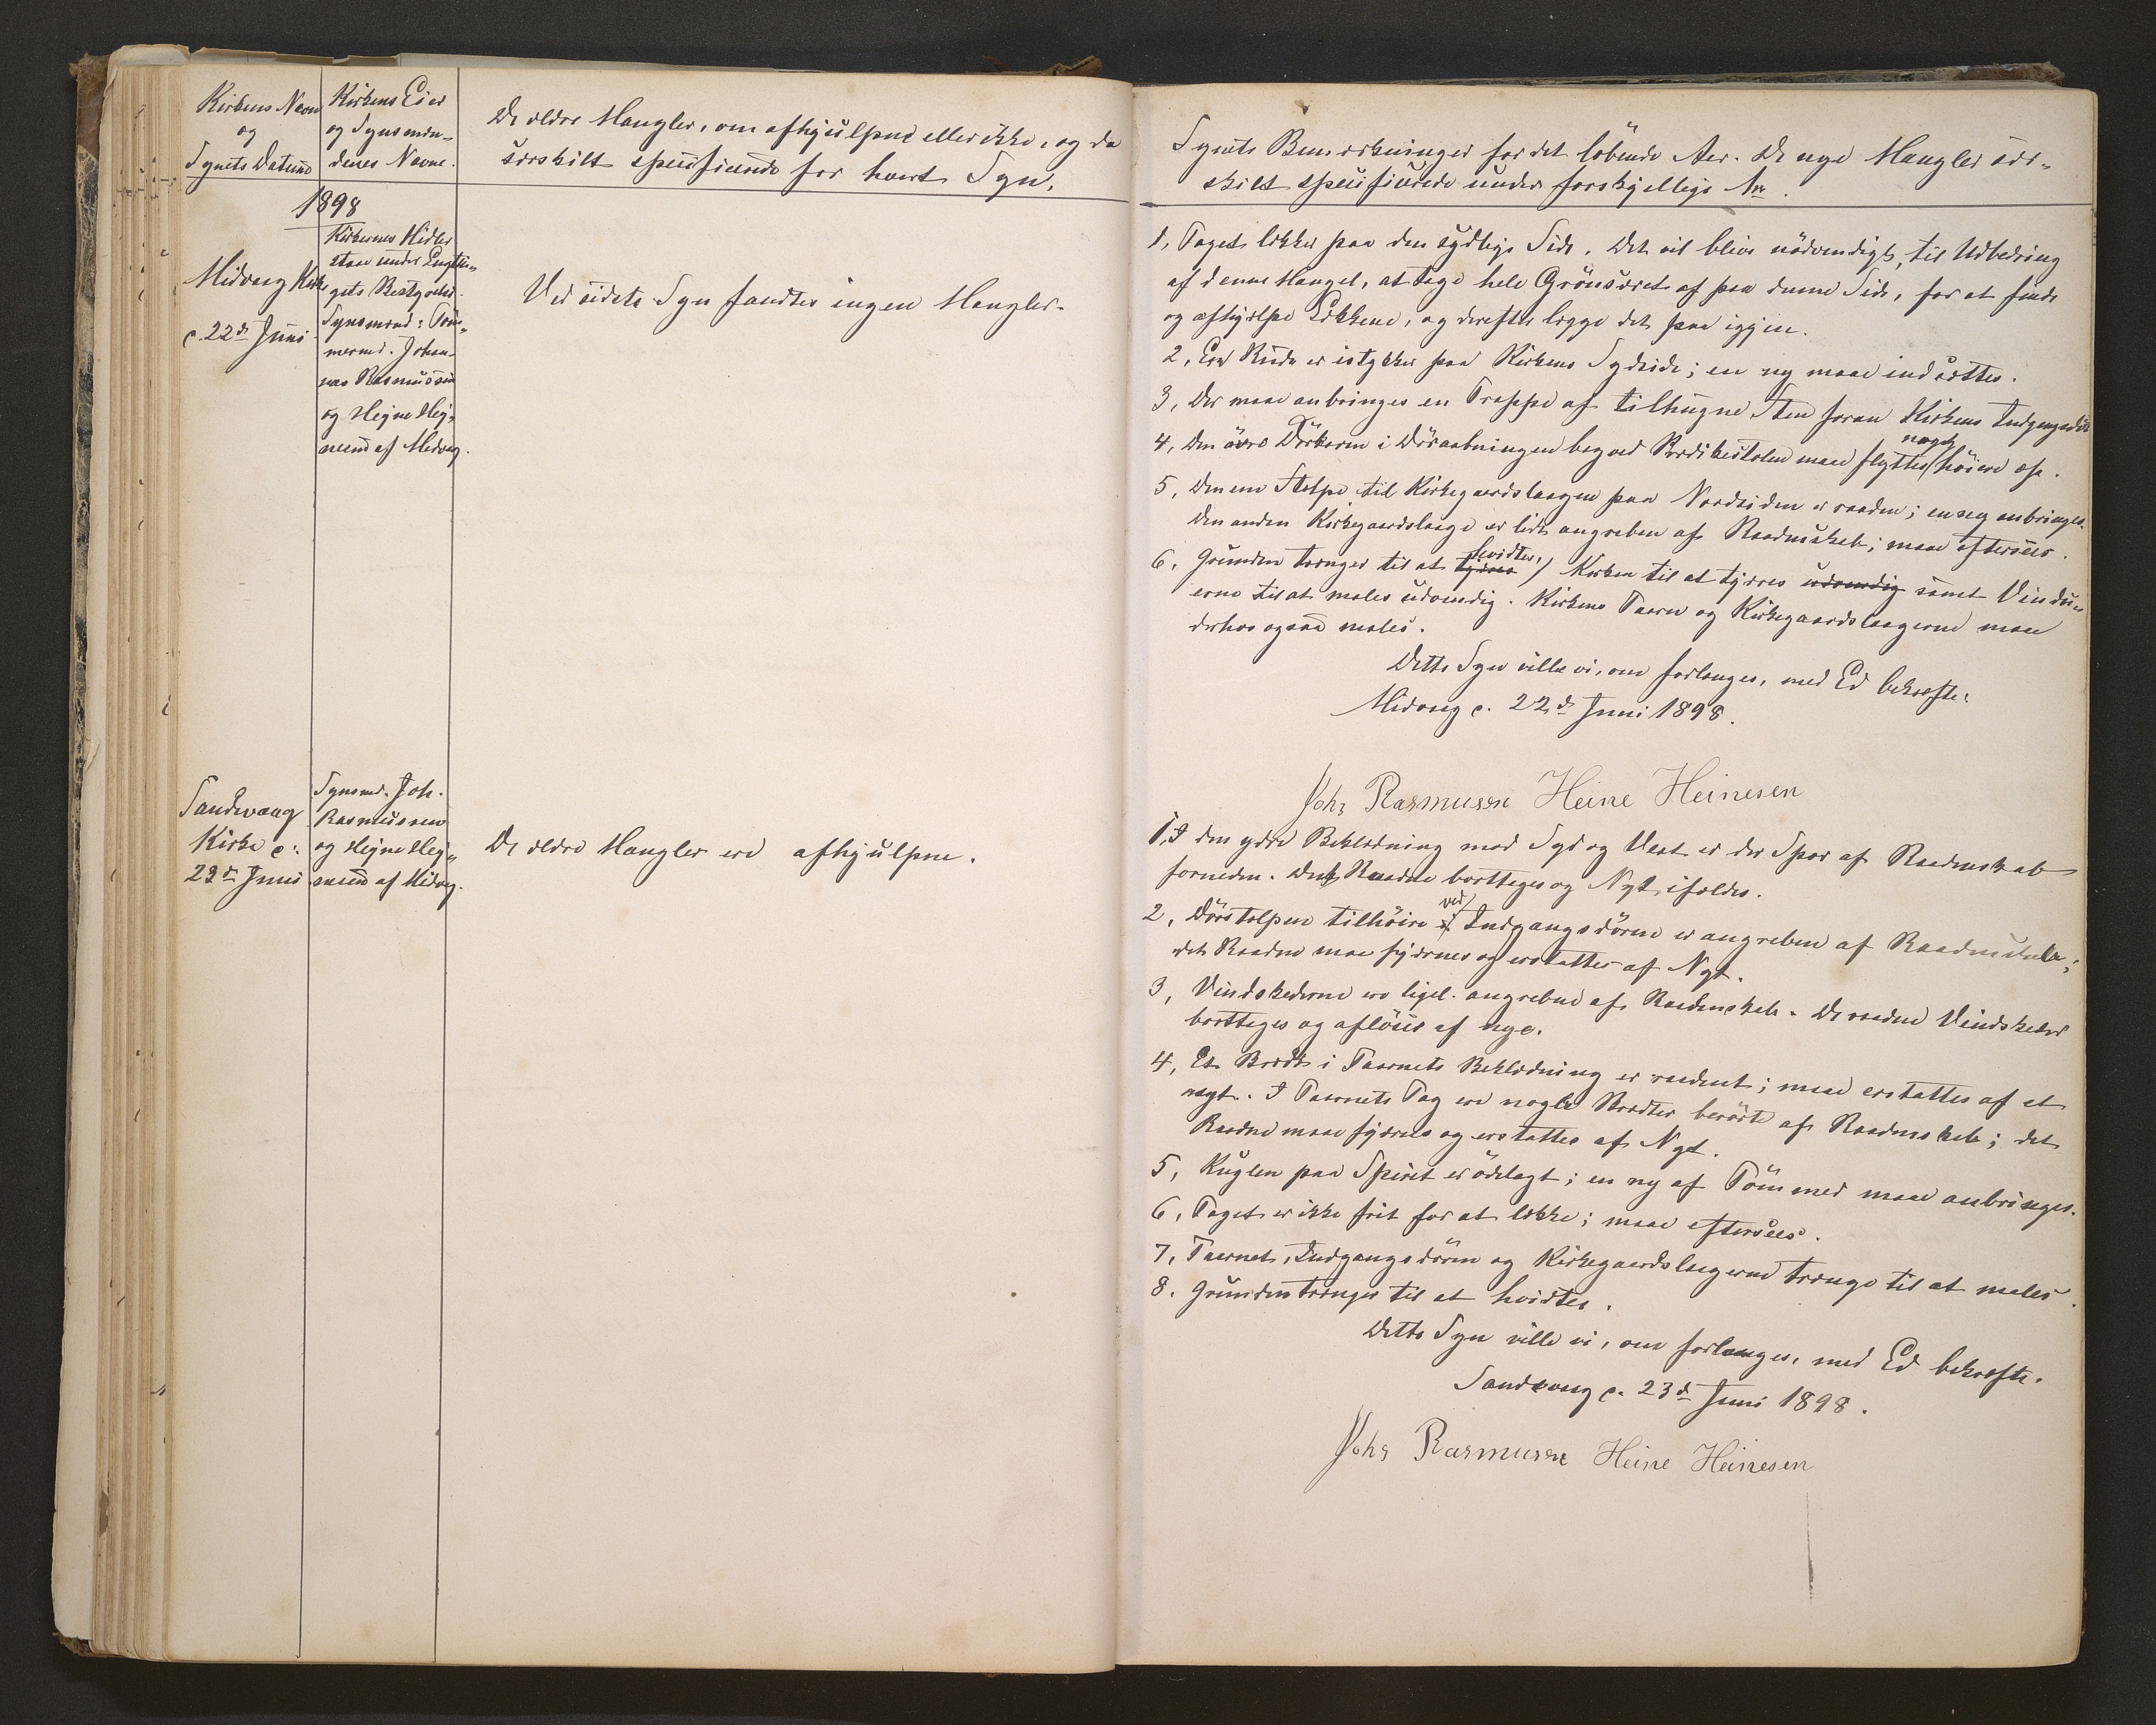 Kirkens Navn
og
Synets Datum
Kirkens Eier
og Synsmæn-
denes Navne.
De ældre Mangler, om afhjulpne eller ikke, og da
særskilt specificerede for hvert Syn.
1898
Midvaag Kirke
d. 22de Juni
Kirkernes Midler
staae under Lagthin-
gets Bestyrelse.
Synsmænd: Töm-
mermd. Johan-
nes Rasmussen
og Hejne Hej-
nesen af Midvaag.
Ved sidste Syn fandtes ingen Mangler.
Sandevaag
Kirke d.
23de Juni
Synsmd. Joh.
Rasmussen
og Hejne Hej-
nesen af Midvaag.
De ældre Mangler ere afhjulpne.
Synets Bemærkninger for det löbende Aar. De nye Mangler sær-
skilt specificerede under forskjellige Nr.
1, Taget lækker paa den sydlige Side. Det vil blive nödvendigt, til Udbedring
af denne Mangel, at tage hele Grönsværet af paa denne Side, for at finde
og afhjælpe Lækkene, og derefter lægge det paa igjen.
2, En Rude er istykker paa Kirkens Sydside; en ny maa indsættes.
3, Der maa anbringes en Trappe af tilhugne Sten foran Kirkens Indgangsdör
4, Den övre Dörkarm i Döraabningen bag ved Prædikestolen maa flyttes noget höiere op.
5, Den ene Stolpe til Kirkegaardslaagen paa Nordsiden er raaden; en ny anbringes.
Den anden Kirkegaardslaage er lidt angreben af Raaddenskab; maa eftersees.
6, Grunden trænger til at tjæres hvidtes, Kirken til at tjæres udvendig samt Vindu-
erne til at males udvendig. Kirkens Taarn og Kirkegaardslaagerne maa
derhos ogsaa males.
Dette Syn ville vi, om forlanges, med Ed bekræfte.
Midvaag d. 22de Juni 1898.
Johs Rasmussen Heine Heinesen
1, I den ydre Beklædning mod Syd og Vest er der Spor af Raaddenskab
forneden. Det Raadne borttages og Nyt ifældes.
2, Dörstolpen tilhöire ved Indgangsdören er angreben af Raaddenskab;
det Raadne maa fjærnes og erstattes af Nyt.
3, Vindskederne ere ligel. angrebne af Raaddenskab. De raadne Vindskeder
borttages og aflöses af nye.
4, Et Brædt i Taarnets Beklædning er raadent; maa erstattes af et
nyt. I Taarnets Tag ere nogle Brædter berörte af Raaddenskab; det
Raadne maa fjærnes og erstattes af Nyt.
5, Kuglen paa Spiret er ödelagt; en ny af Tömmer maa anbringes.
6, Taget er ikke frit for at lække; maa eftersees.
7, Taarnet, Indgangsdören og Kirkegaardslaagerne trænge til at males.
8. Grunden trænger til at hvidtes.
Dette Syn ville vi, om forlanges, med Ed bekræfte.
Sandevaag d. 23de Juni 1898.
Johs Rasmussen Heine Heinesen